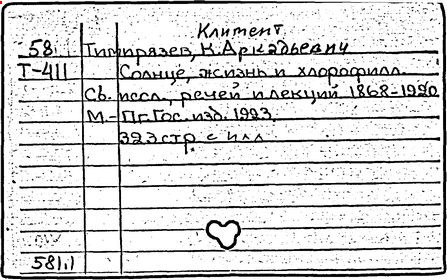 Климент
58 Тимирязев, К. Аркадьевич
Т-411 Солнце, жизнь и хлорофилл.
Сб. иссл., речей и лекций 1868-1920
М.- Пг. Гос. изд. 1923
323 стр. с илл
581.1